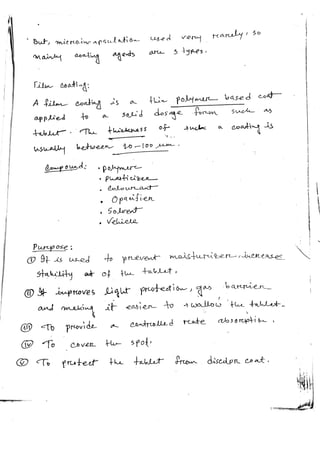 But, microincapsulation used very rarely, so
mainly coating agents are 3 types.
Film coating:
A film coating is a thin polymer based coat
applied to a solid dosage form such as
tablet. The thickness of such a coating is
usually between 20-100 um.
Compound: • polymer
• Plasticizer
• Colourant
• Opacifier
• Solvent
• Vehicle
Purpose:
(i) It is used to prevent moisturizer, increases
stability at of the tablet.
(ii) It improves light protection, gas barrier
and making it easier to swallow the tablet.
(iii) To provide a controlled rate absorption.
(iv) To cover the spot.
(v) To protect the tablet from